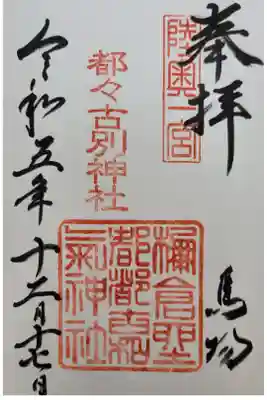 奉拝
陸奥一宮
馬場
都々古別神社
倉
都都
氣神社
令和五年十二月十七日